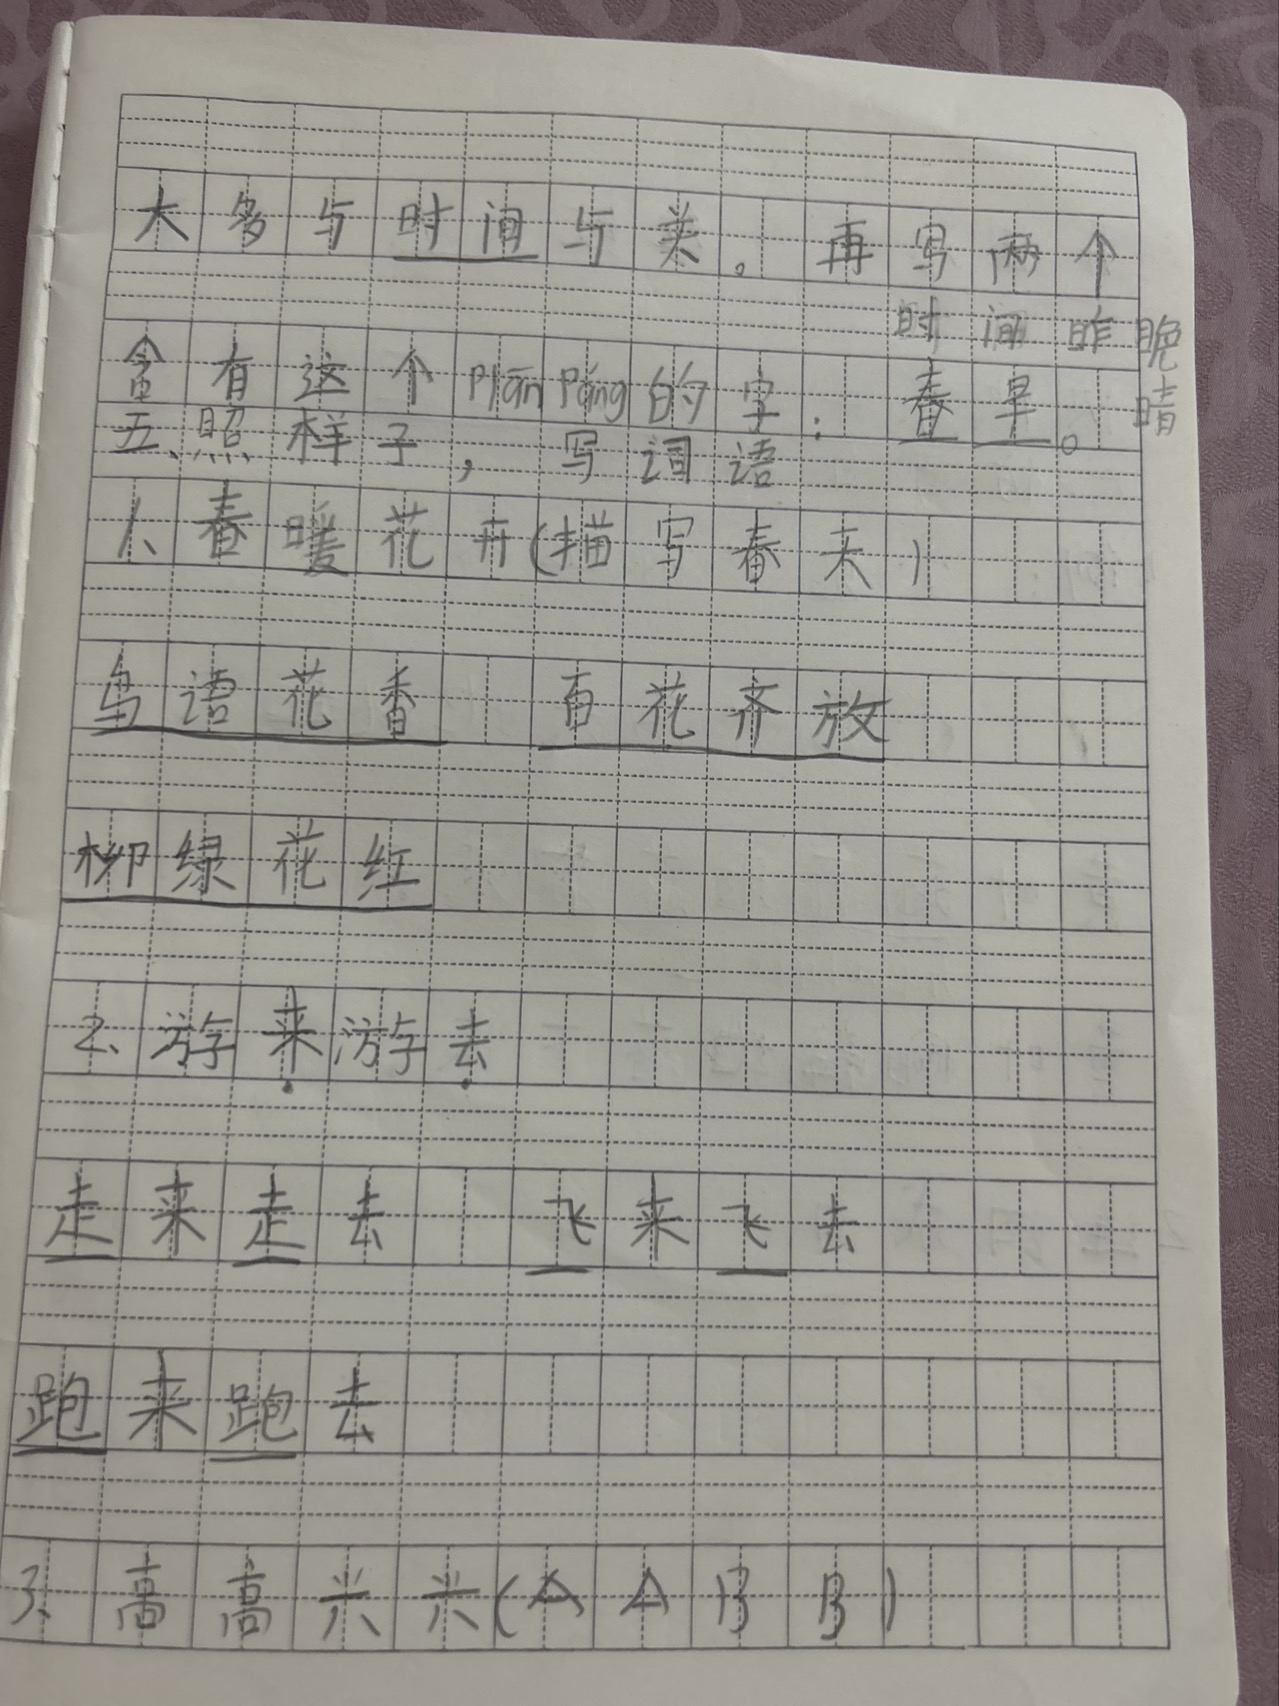 大多与时间与关。再写两个
时间昨晚
含有这个piān páng的字：春早。晴
五、照样子，写词语
1、春暖花开(描写春天)
鸟语花香 百花齐放
柳绿花红
2、游来游去
走来走去 飞来飞去
跑来跑去
3、高高兴兴(AABB)